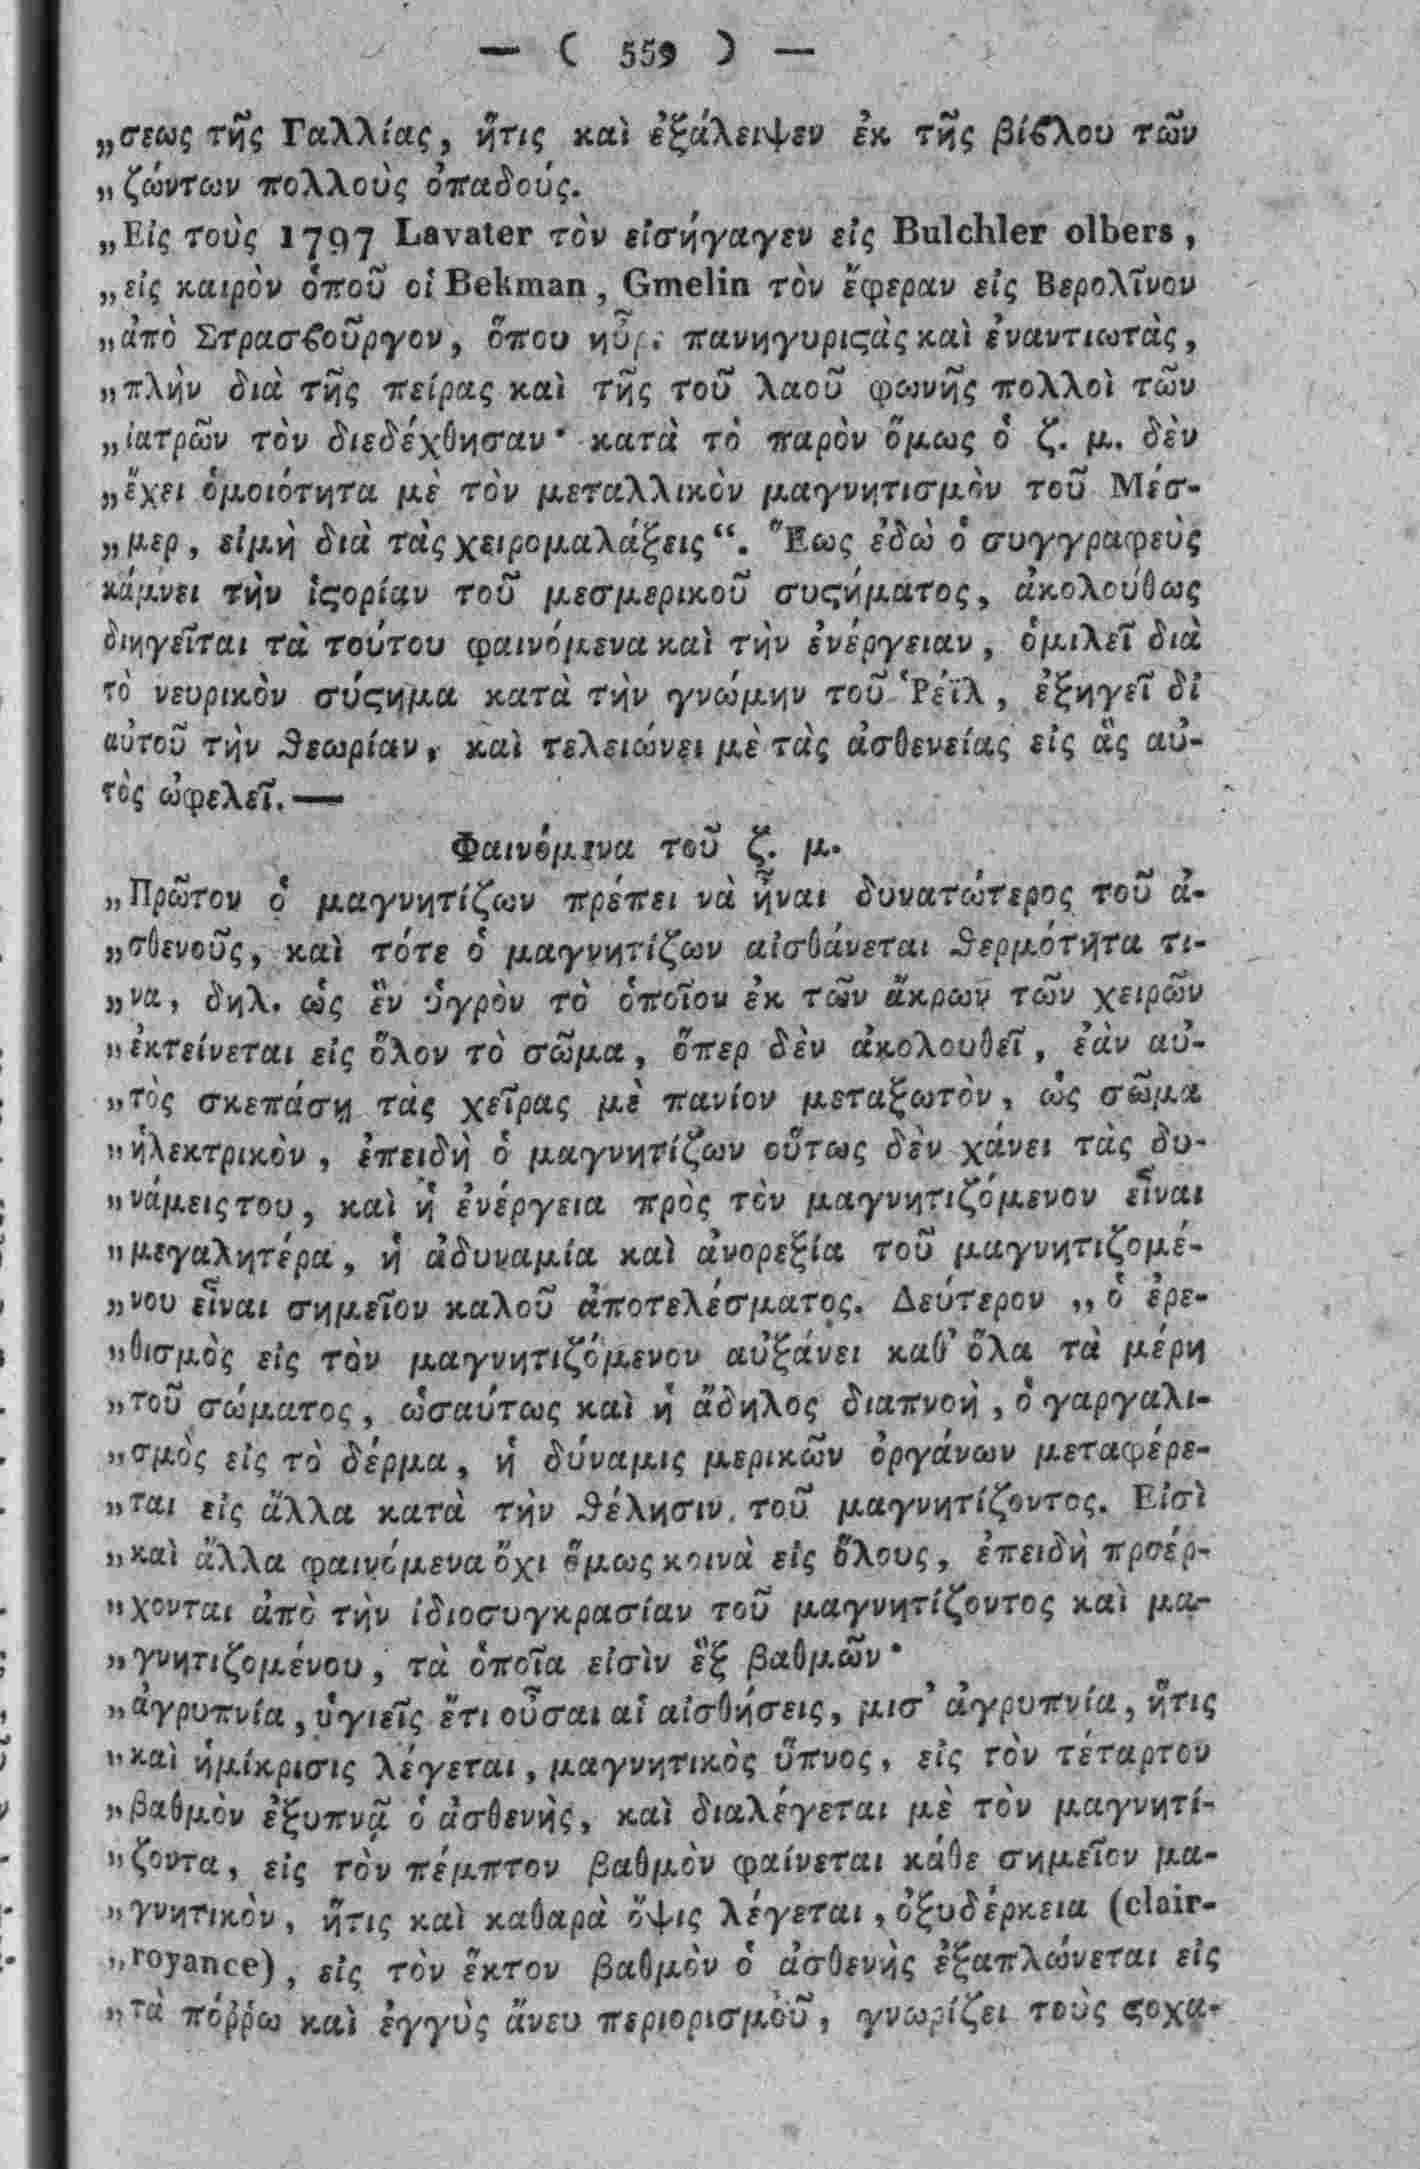 — ( 559 ) —
„σεως τῆς Γαλλίας, ἥτις καὶ ἐξάλειψεν ἐκ τῆς βίϐλου τῶν
„ζώντων πολλοὺς ὀπαδούς.
„Εἰς τοὺς 1797 Lavater τὸν εἰσήγαγεν εἰς Bulchler olbers,
„εἰς καιρὸν ὁποῦ οἱ Bekman, Gmelin τὸν ἔφεραν εἰς Βερολῖνον
„ἀπὸ Στρασϐοῦργον, ὅπου ηὗρε πανηγυριϛὰς καὶ ἐναντιωτὰς,
„πλὴν διὰ τῆς πείρας καὶ τῆς τοῦ λαοῦ φωνῆς πολλοὶ τῶν
„ἰατρῶν τὸν διεδέχθησαν· κατὰ τὸ παρὸν ὅμως ὁ ζ. μ. δὲν
„ἔχει ὁμοιότητα μὲ τὸν μεταλλικὸν μαγνητισμὸν τοῦ Μέσ-
„μερ, εἰμὴ διὰ τὰς χειρομαλάξεις“. Ἕως ἐδὼ ὁ συγγραφεὺς
κάμνει τὴν ἱϛορίαν τοῦ μεσμερικοῦ συϛήματος, ἀκολούθως
διηγεῖται τὰ τούτου φαινόμενα καὶ τὴν ἐνέργειαν, ὁμιλεῖ διὰ
τὸ νευρικὸν σύϛημα κατὰ τὴν γνώμην τοῦ Ῥέϊλ, ἐξηγεῖ δἰ
αὐτοῦ τὴν ϑεωρίαν, καὶ τελειώνει μὲ τὰς ἀσθενείας εἰς ἃς αὐ-
τὸς ὠφελεῖ.—
Φαινόμενα τοῦ ζ. μ.
„Πρῶτον ὁ μαγνητίζων πρέπει νὰ ἦναι δυνατώτερος τοῦ ἀ-
„σθενοῦς, καὶ τότε ὁ μαγνητίζων αἰσθάνεται ϑερμότητα τι-
„να, δηλ. ὡς ἓν ὑγρὸν τὸ ὁποῖον ἐκ τῶν ἄκρων τῶν χειρῶν
„ἐκτείνεται εἰς ὅλον τὸ σῶμα, ὅπερ δὲν ἀκολουθεῖ, ἐὰν αὐ-
„τὸς σκεπάσῃ τὰς χεῖρας μὲ πανίον μεταξωτὸν, ὡς σῶμα
„ἠλεκτρικὸν, ἐπειδὴ ὁ μαγνητίζων οὕτως δὲν χάνει τὰς δυ-
„νάμεις του, καὶ ἡ ἐνέργεια πρὸς τὸν μαγνητιζόμενον εἶναι
„μεγαλητέρα, ἡ ἀδυναμία καὶ ἀνορεξία τοῦ μαγνητιζομέ-
„νου εἶναι σημεῖον καλοῦ ἀποτελέσματος. Δεύτερον „ὁ ἐρε-
„θισμὸς εἰς τὸν μαγνητιζόμενον αὐξάνει καθ’ ὅλα τὰ μέρη
„τοῦ σώματος, ὡσαύτως καὶ ἡ ἄδηλος διαπνοὴ, ὁ γαργαλι-
„σμὸς εἰς τὸ δέρμα, ἡ δύναμις μερικῶν ὀργάνων μεταφέρε-
„ται εἰς ἄλλα κατὰ τὴν ϑέλησιν τοῦ μαγνητίζοντος. Εἰσὶ
„καὶ ἄλλα φαινόμενα ὄχι ὅμως κοινὰ εἰς ὅλους, ἐπειδὴ προέρ-
„χονται ἀπὸ τὴν ἰδιοσυγκρασίαν τοῦ μαγνητίζοντος καὶ μα-
„γνητιζομένου, τὰ ὁποῖα εἰσὶν ἓξ βαθμῶν·
„ἀγρυπνία, ὑγιεῖς ἔτι οὖσαι αἱ αἰσθήσεις, μισ’ ἀγρυπνία, ἥτις
„καὶ ἡμίκρισις λέγεται, μαγνητικὸς ὕπνος, εἰς τὸν τέταρτον
„βαθμὸν ἐξυπνᾷ ὁ ἀσθενὴς, καὶ διαλέγεται μὲ τὸν μαγνητί-
„ζοντα, εἰς τὸν πέμπτον βαθμὸν φαίνεται κάθε σημεῖον μα-
„γνητικὸν, ἥτις καὶ καθαρὰ ὄψις λέγεται, ὀξυδέρκεια (clair-
„royance), εἰς τὸν ἕκτον βαθμὸν ὁ ἀσθενὴς ἐξαπλώνεται εἰς
„τὰ πόῤῥω καὶ ἐγγὺς ἄνευ περιορισμοῦ, γνωρίζει τοὺς ϛοχα-